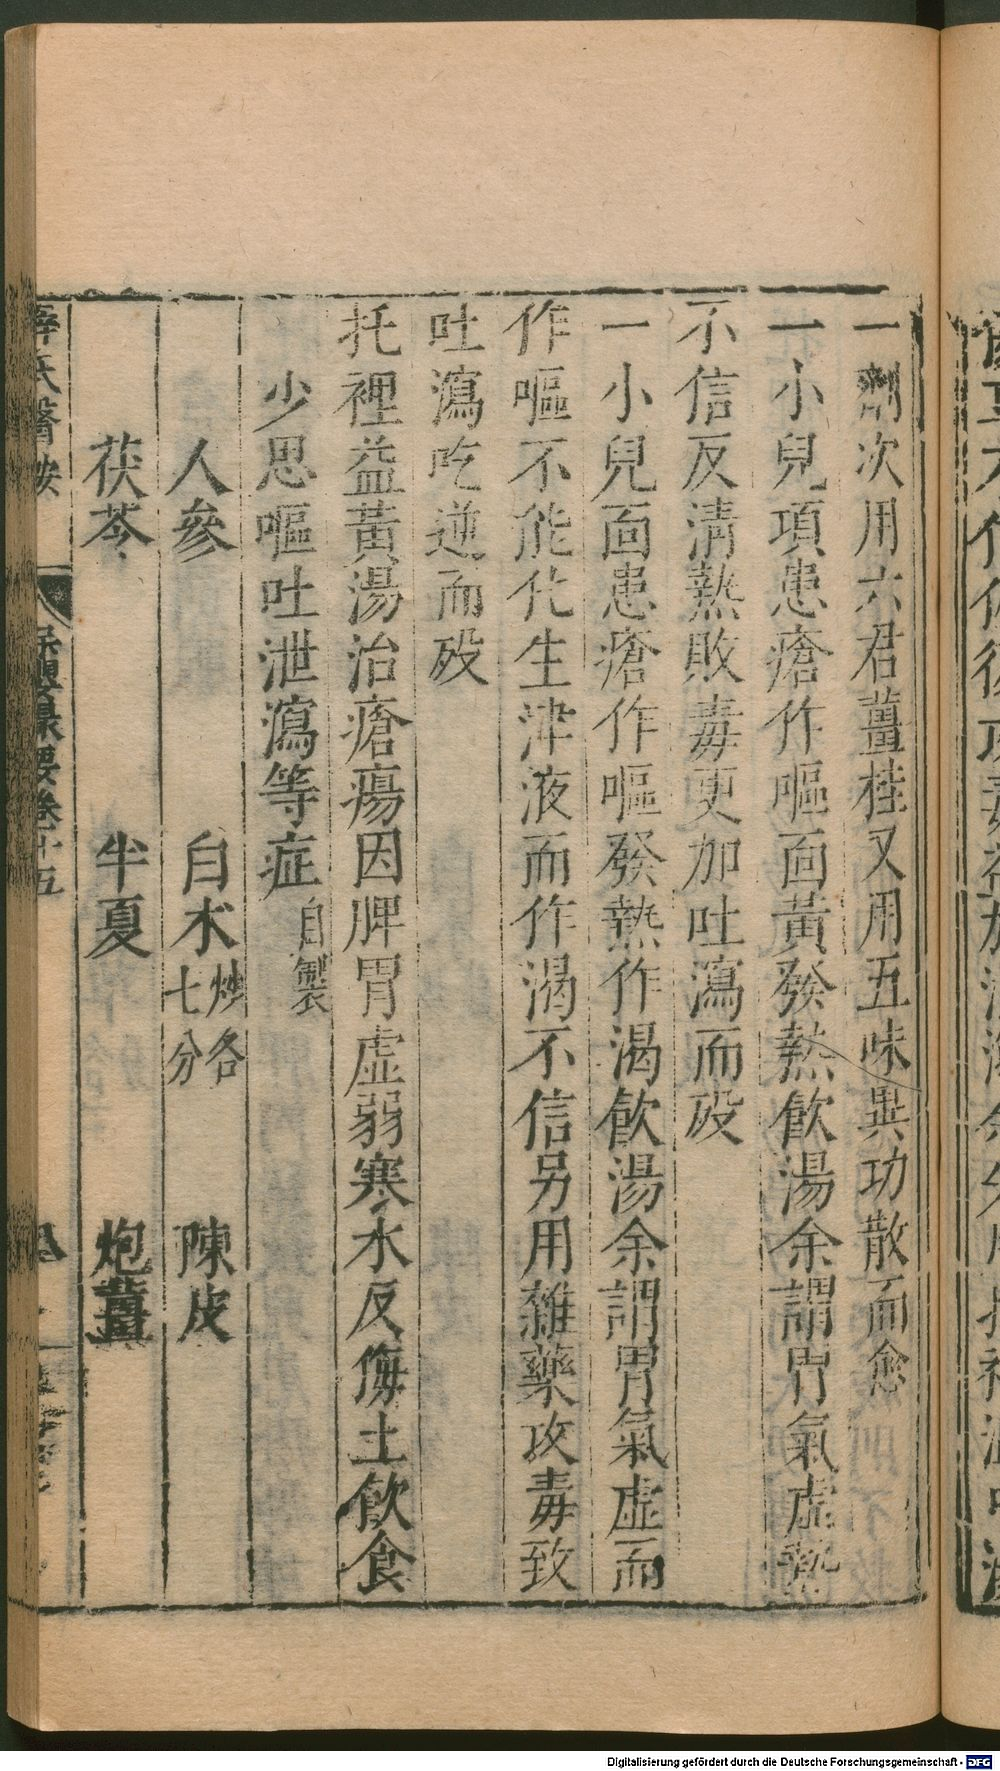 一劑次用六君薑桂又用五味異功散而愈
一小兒項患瘡作嘔面黃發熱飲湯余謂胃氣虛熱
不信反清熱敗毒更加吐瀉而歿
一小兒面患瘡作嘔發熱作渴飲湯余謂胃氣虛而
作嘔不能化生津液而作渴不信另用雜藥攻毒致
吐瀉吃逆而歿
托裡益黃湯治瘡瘍因脾胃虛弱寒水反侮土飲食
少思嘔吐泄瀉等症自製
人參 白朮炒各七分 陳皮
茯苓 半夏 炮薑
薛氏醫按 保嬰撮要卷十五
Digitalisierung gefördert durch die Deutsche Forschungsgemeinschaft - DFG